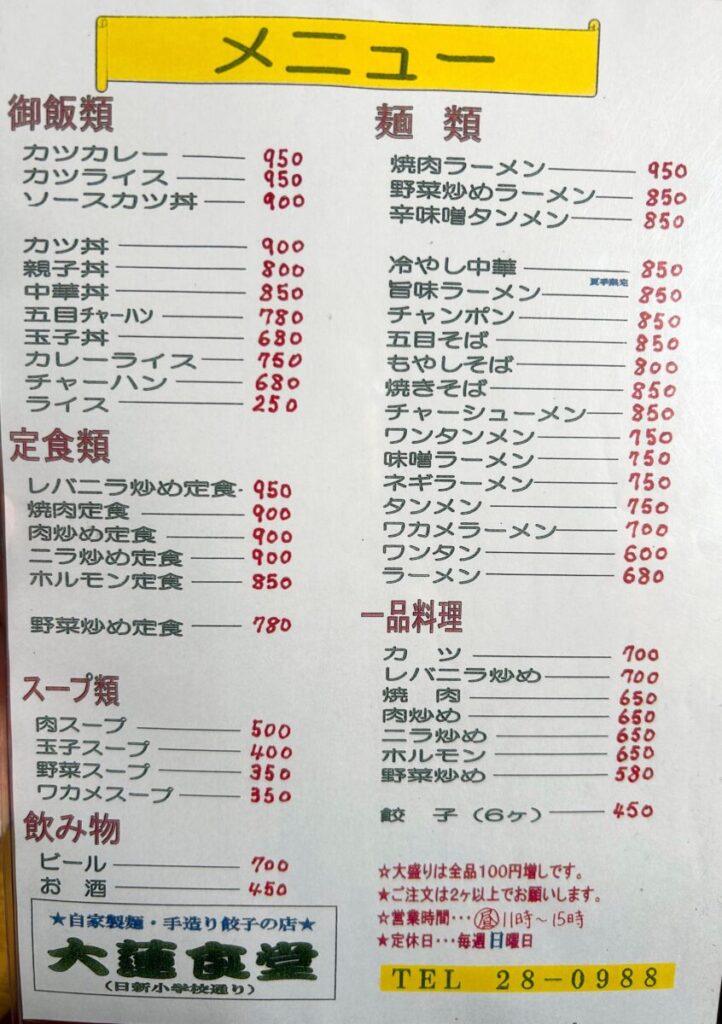 メニュー
御飯類
カツカレー 950
カツライス 950
ソースカツ丼 900
カツ丼 900
親子丼 800
中華丼 850
五目チャーハン 780
玉子丼 680
カレーライス 750
チャーハン 680
ライス 250
定食類
レバニラ炒め定食 950
焼肉定食 900
肉炒め定食 900
ニラ炒め定食 900
ホルモン定食 850
野菜炒め定食 780
スープ類
肉スープ 500
玉子スープ 400
野菜スープ 350
ワカメスープ 350
飲み物
ビール 700
お酒 450
★自家製麺・手造り餃子の店★
大蓮食堂
(日新小学校通り)
麺類
焼肉ラーメン 950
野菜炒めラーメン 850
辛味噌タンメン 850
冷やし中華 850
夏季限定
旨味ラーメン 850
チャンポン 850
五目そば 850
もやしそば 800
焼きそば 850
チャーシューメン 850
ワンタンメン 750
味噌ラーメン 750
ネギラーメン 750
タンメン 750
ワカメラーメン 700
ワンタン 600
ラーメン 680
一品料理
カツ 700
レバニラ炒め 700
焼肉 650
肉炒め 650
ニラ炒め 650
ホルモン 650
野菜炒め 580
餃子(6ヶ) 450
☆大盛りは全品100円増しです。
★ご注文は2ヶ以上でお願いします。
☆営業時間・・・昼11時~15時
★定休日・・・毎週日曜日
TEL 28-0988